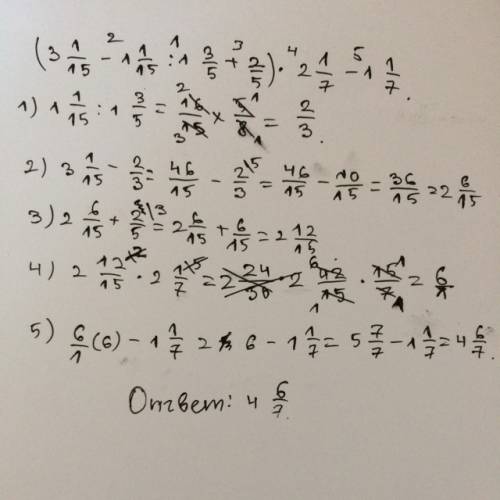 (3 1/15 - 1 1/15 : 1 3/5 + 2/5) · 2 1/7 - 1 1/7.
1) 1 1/15 : 1 3/5 = 16/15 × 5/8 = 2/3.
2) 3 1/15 - 2/3 = 46/15 - 2/3 \5 = 46/15 - 10/15 = 36/15 = 2 6/15
3) 2 6/15 + 2/5 \3 = 2 6/15 + 6/15 = 2 12/15
4) 2 12/15 · 2 1/7 = 42/15 · 15/7 = 6/1
5) 6/1 (6) - 1 1/7 = 6 - 1 1/7 = 5 7/7 - 1 1/7 = 4 6/7.
Ответ: 4 6/7.